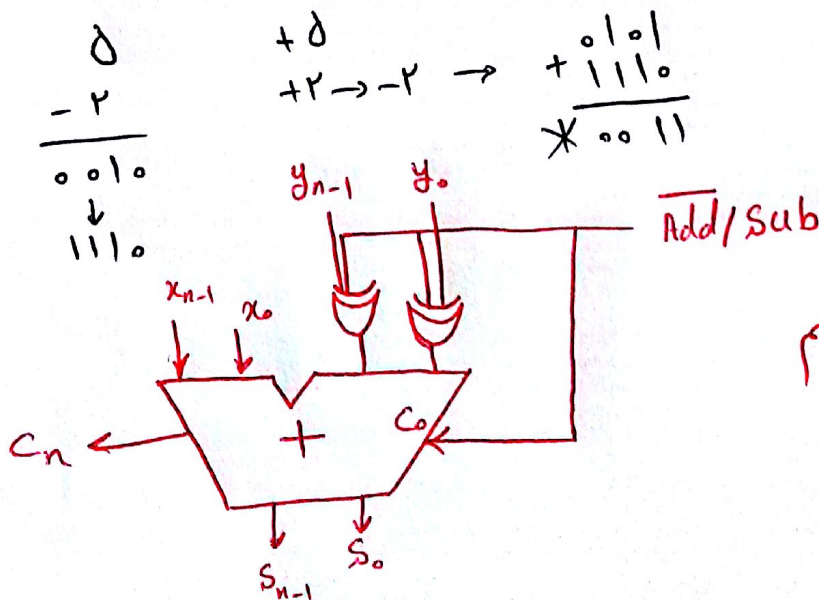 ۵
- ۲
۰۰۱۰
↓
۱۱۱۰
+ ۵
+۲ → -۲ →
۰۱۰۱
+ ۱۱۱۰
* ۰۰۱۱
yn-1 y0
Add/Sub
xn-1 x0
Cn + C0
Sn-1 S0